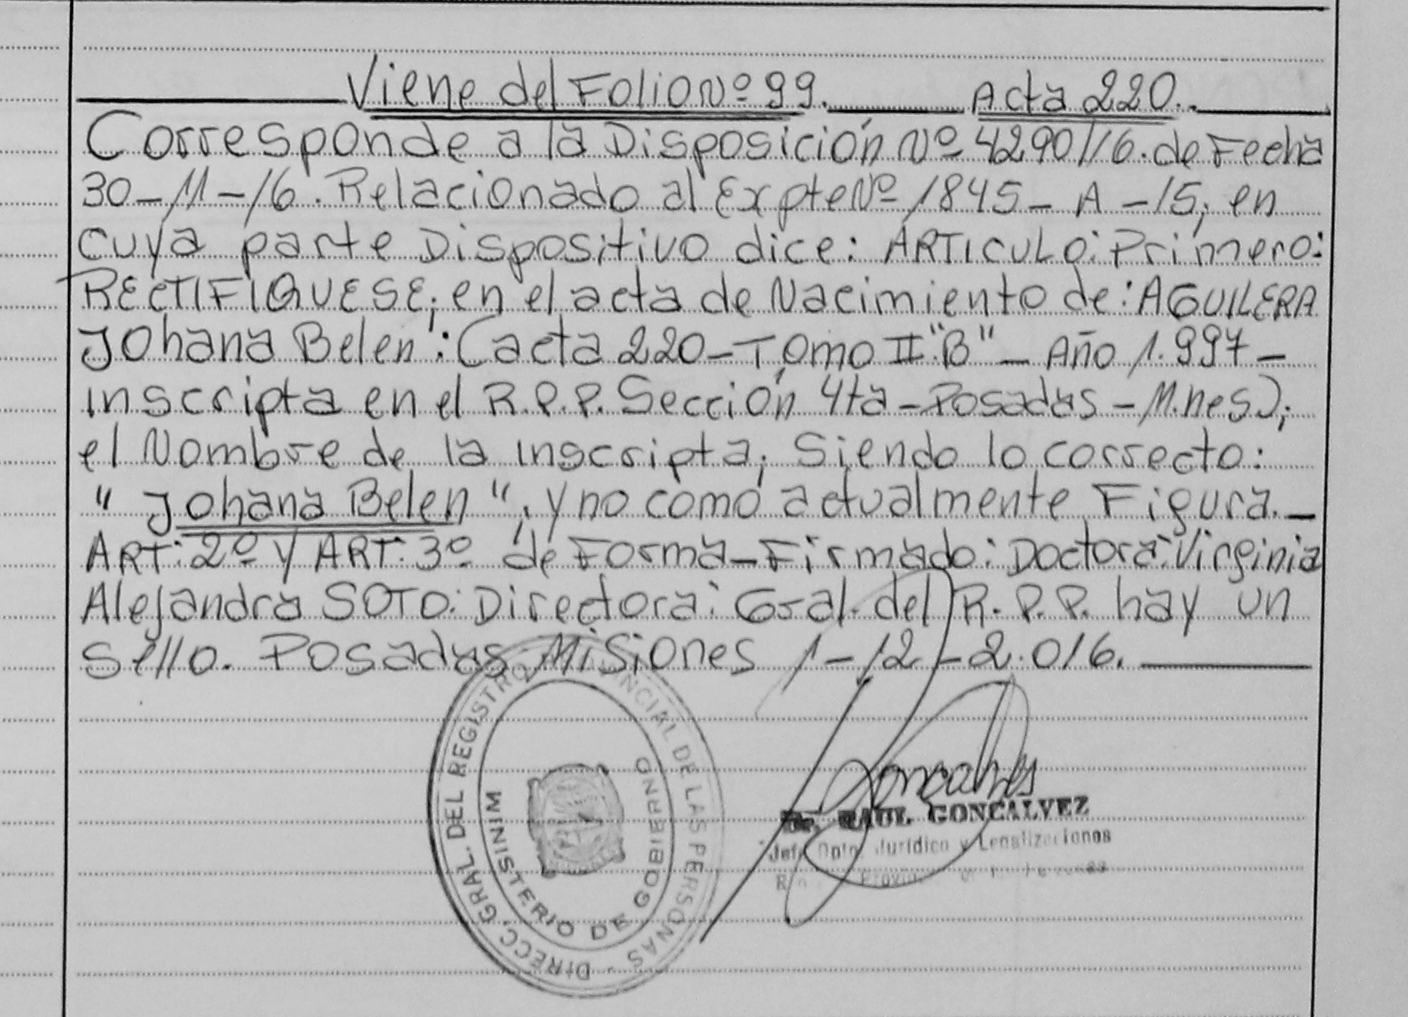 Viene del Folio Nº 99. Acta 220.
Corresponde a la Disposición Nº 4290/16. de Fecha
30-11-16. Relacionado al Expte Nº 1845-A-15, en
cuya parte Dispositivo dice: ARTICULO: Primero:
RECTIFIQUESE, en el acta de Nacimiento de: AGUILERA
Johana Belen: (acta 220-Tomo II "B" - Año 1.997-
inscripta en el R.P.P. Sección 4ta-Posadas-M.nes),
el Nombre de la inscripta, Siendo lo correcto:
"Johana Belen", y no como actualmente Figura.-
ART: 2º Y ART: 3º de Forma-Firmado: Doctora: Virginia
Alejandra SOTO: Directora: Gral. del R.P.P. hay un
sello. Posadas, Misiones 1-12-2.016.
DIRECC. GRAL. DEL REGISTRO PROVINCIAL DE LAS PERSONAS -
MINISTERIO DE GOBIERNO
Goncalves
Dr. RAUL GONCALVEZ
Jefe Dpto. Jurídico y Legalizaciones